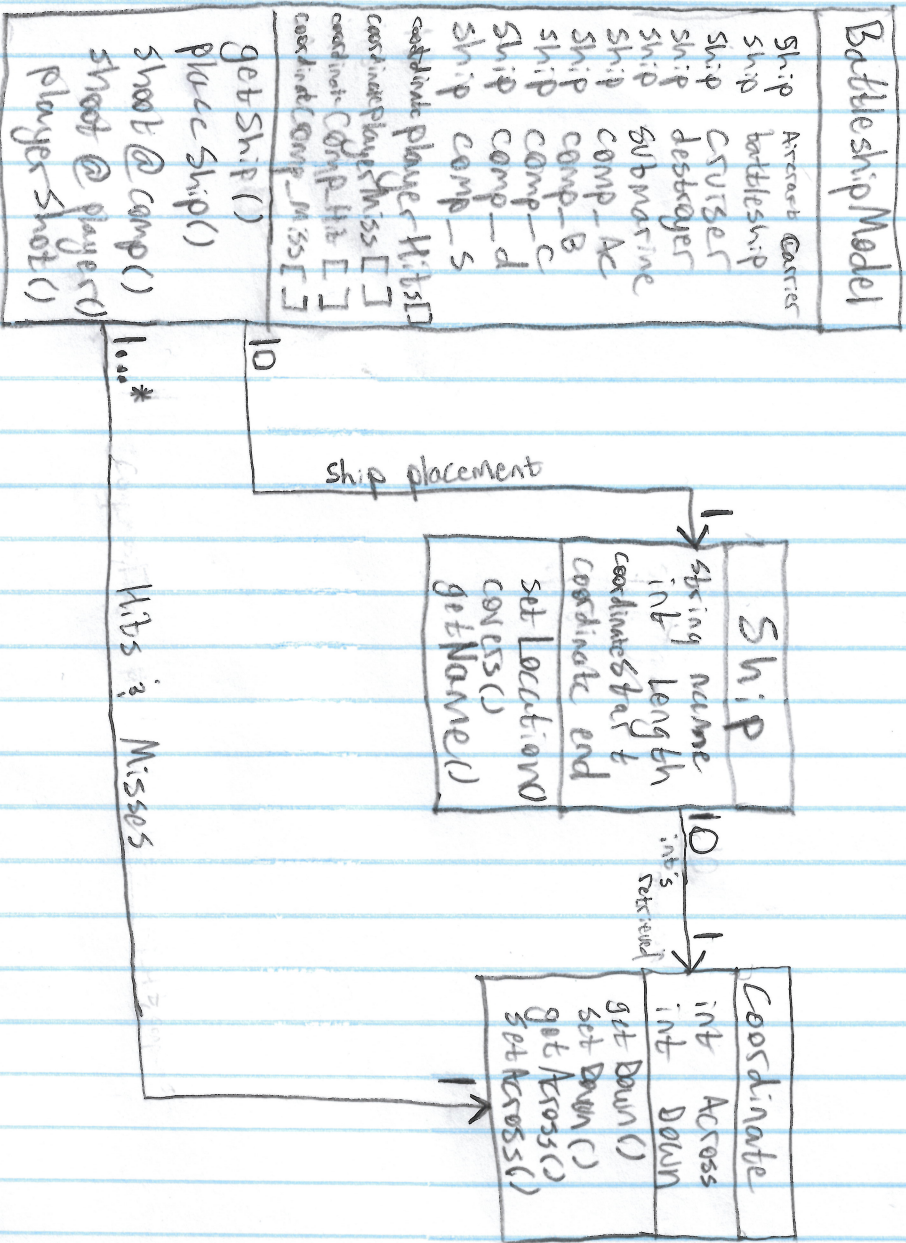 BattleshipModel
Ship Aircraft Carrier
Ship battleship
Ship Cruiser
Ship destroyer
Ship Submarine
Ship Comp_AC
Ship Comp_B
Ship Comp_C
Ship Comp_d
Ship Comp_S
coordinate player Hits[]
coordinate player Miss[]
coordinate Comp_Hit[]
coordinate Comp_Miss[]
getShip()
placeShip()
Shoot@comp()
Shoot@player()
playerShot()
10
ship placement
1
1...*
Hits & Misses
1
Ship
String name
int Length
coordinate Start
coordinate end
setLocation()
covers()
getName()
10
int's retrieved
1
Coordinate
int Across
int Down
getDown()
setDown()
getAcross()
setAcross()